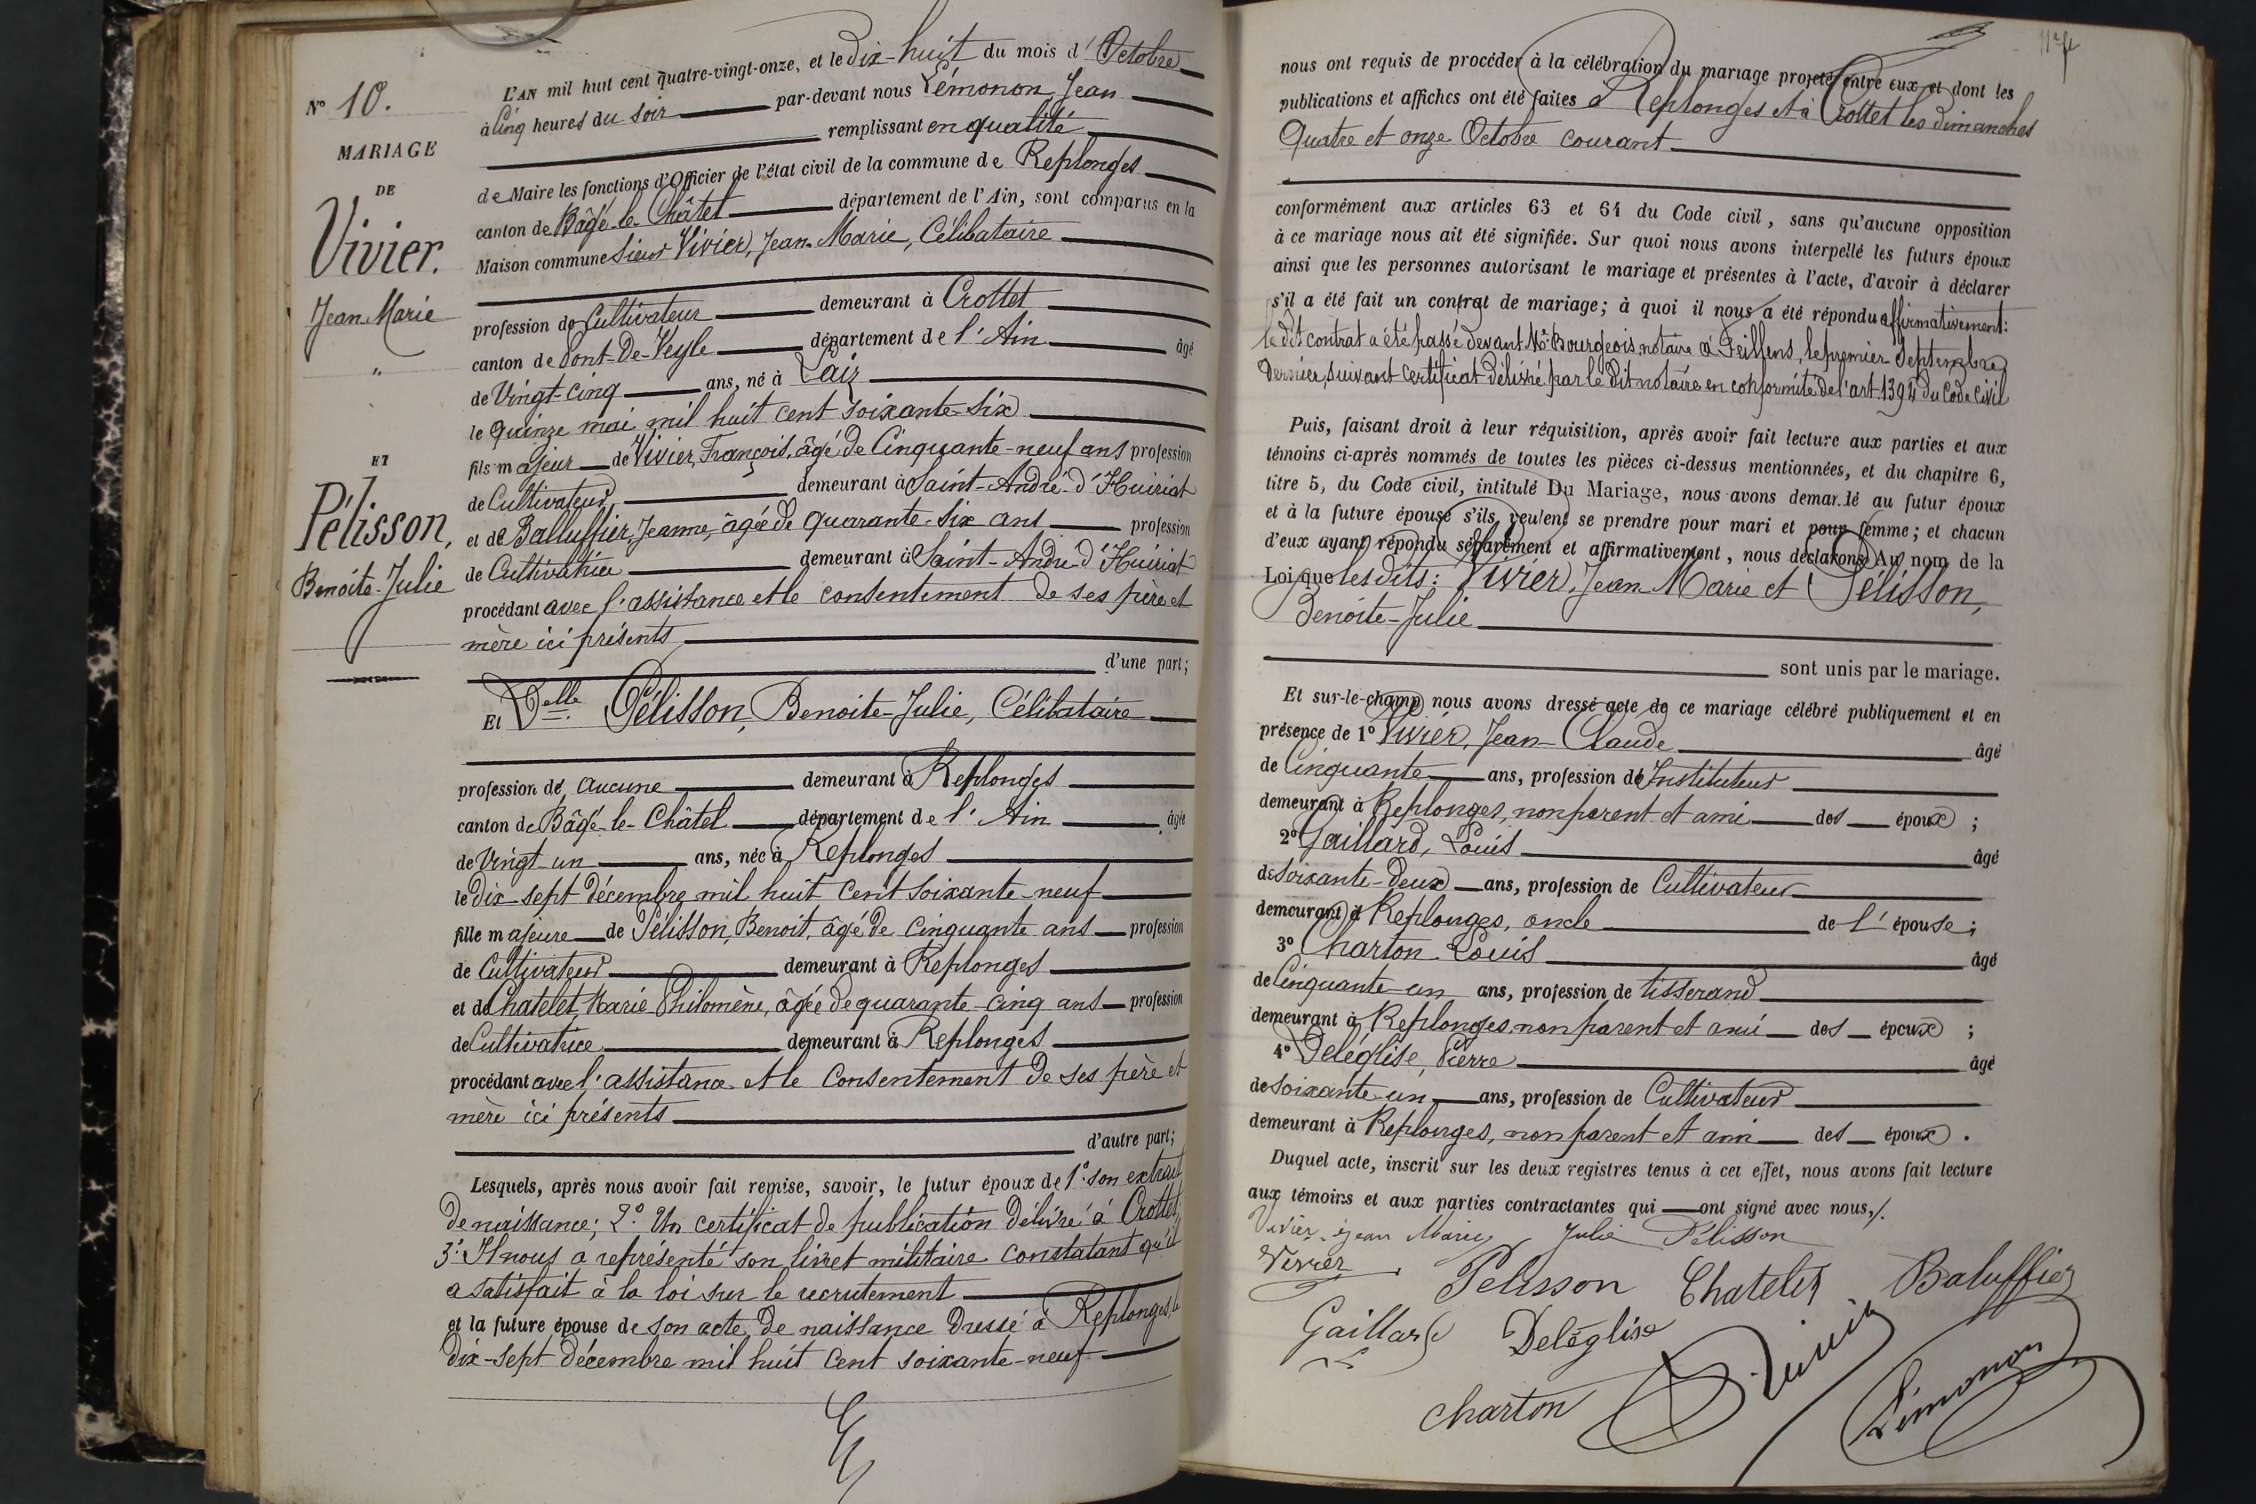 N° 10.
MARIAGE
DE
Vivier.
Jean Marie
"
ET
Pélisson,
Benoite-Julie
L'AN mil huit cent quatre-vingt-onze, et le Dix-huit du mois d'Octobre
à Cinq heures du soir par-devant nous Lémonon, Jean
remplissant en qualité
de Maire les fonctions d'Officier de l'état civil de la commune de Replonges
canton de Bâgé-le-Châtel département de l'Ain, sont comparus en la
Maison commune Sieur Vivier, Jean-Marie, Célibataire
profession de Cultivateur demeurant à Crottet
canton de Pont-De-Veyle département de l'Ain âgé
de Vingt-cinq ans, né à Laiz
le quinze mai mil huit cent soixante-six
fils majeur de Vivier, François, âgé de Cinquante-neuf ans profession
de Cultivateur demeurant à Saint-André-d'Huiriat
et de Balluffier, Jeanne, âgée de quarante-six ans profession
de Cultivatrice demeurant à Saint-André-d'Huiriat
procédant avec l'assistance et le consentement de ses père et
mère ici présents
d'une part;
Et Delle Pélisson, Benoite-Julie, Célibataire
profession de aucune demeurant à Replonges
canton de Bâgé-le-Châtel département de l'Ain âgée
de Vingt-un ans, née à Replonges
le dix-sept décembre mil huit cent soixante-neuf
fille majeure de Pélisson, Benoit, âgé de cinquante ans profession
de Cultivateur demeurant à Replonges
et de Chatelet, Marie Philomène, âgée de quarante-cinq ans profession
de Cultivatrice demeurant à Replonges
procédant avec l'assistance et le Consentement de ses père et
mère ici présents
d'autre part;
Lesquels, après nous avoir fait remise, savoir, le futur époux de 1° son extrait
de naissance; 2° Un certificat de publication délivré à Crottet,
3° Il nous a représenté son livret militaire constatant qu'il
a satisfait à la loi sur le recrutement
et la future épouse de son acte de naissance dressé à Replonges, le
dix-sept décembre mil huit cent soixante-neuf
nous ont requis de procéder à la célébration du mariage projeté entre eux et dont les
publications et affiches ont été faites à Replonges et à Crottet les dimanches
Quatre et onze Octobre courant
conformément aux articles 63 et 64 du Code civil, sans qu'aucune opposition
à ce mariage nous ait été signifiée. Sur quoi nous avons interpellé les futurs époux
ainsi que les personnes autorisant le mariage et présentes à l'acte, d'avoir à déclarer
s'il a été fait un contrat de mariage; à quoi il nous a été répondu affirmativement:
le dit contrat a été passé devant Me Bourgeois, notaire à Feillens, le premier Septembre
dernier, suivant certificat délivré par le dit notaire en conformité de l'art. 1394 du Code Civil
Puis, faisant droit à leur réquisition, après avoir fait lecture aux parties et aux
témoins ci-après nommés de toutes les pièces ci-dessus mentionnées, et du chapitre 6,
titre 5, du Code civil, intitulé Du Mariage, nous avons demandé au futur époux
et à la future épouse s'ils veulent se prendre pour mari et pour femme; et chacun
d'eux ayant répondu séparément et affirmativement, nous déclarons Au nom de la
Loi que les dits: Vivier, Jean Marie et Pélisson,
Benoite-Julie
sont unis par le mariage.
Et sur-le-champ nous avons dressé acte de ce mariage célébré publiquement et en
présence de 1° Vivier, Jean-Claude âgé
de Cinquante ans, profession de Instituteur
demeurant à Replonges, non parent et ami des époux;
2° Gaillard, Louis âgé
de soixante-deux ans, profession de Cultivateur
demeurant à Replonges, oncle de L'épouse;
3° Charton Louis âgé
de Cinquante-un ans, profession de tisserand
demeurant à Replonges, non parent et ami des époux;
4° Deléglise, Pierre âgé
de soixante-un ans, profession de Cultivateur
demeurant à Replonges, non parent et ami des époux.
Duquel acte, inscrit sur les deux registres tenus à cet effet, nous avons fait lecture
aux témoins et aux parties contractantes qui ont signé avec nous./.
Vivier Jean Marie Julie Pélisson
Vivier
Pelisson Chatelet Baluffier
Gaillard Deléglise
Charton Vivier Lémonon